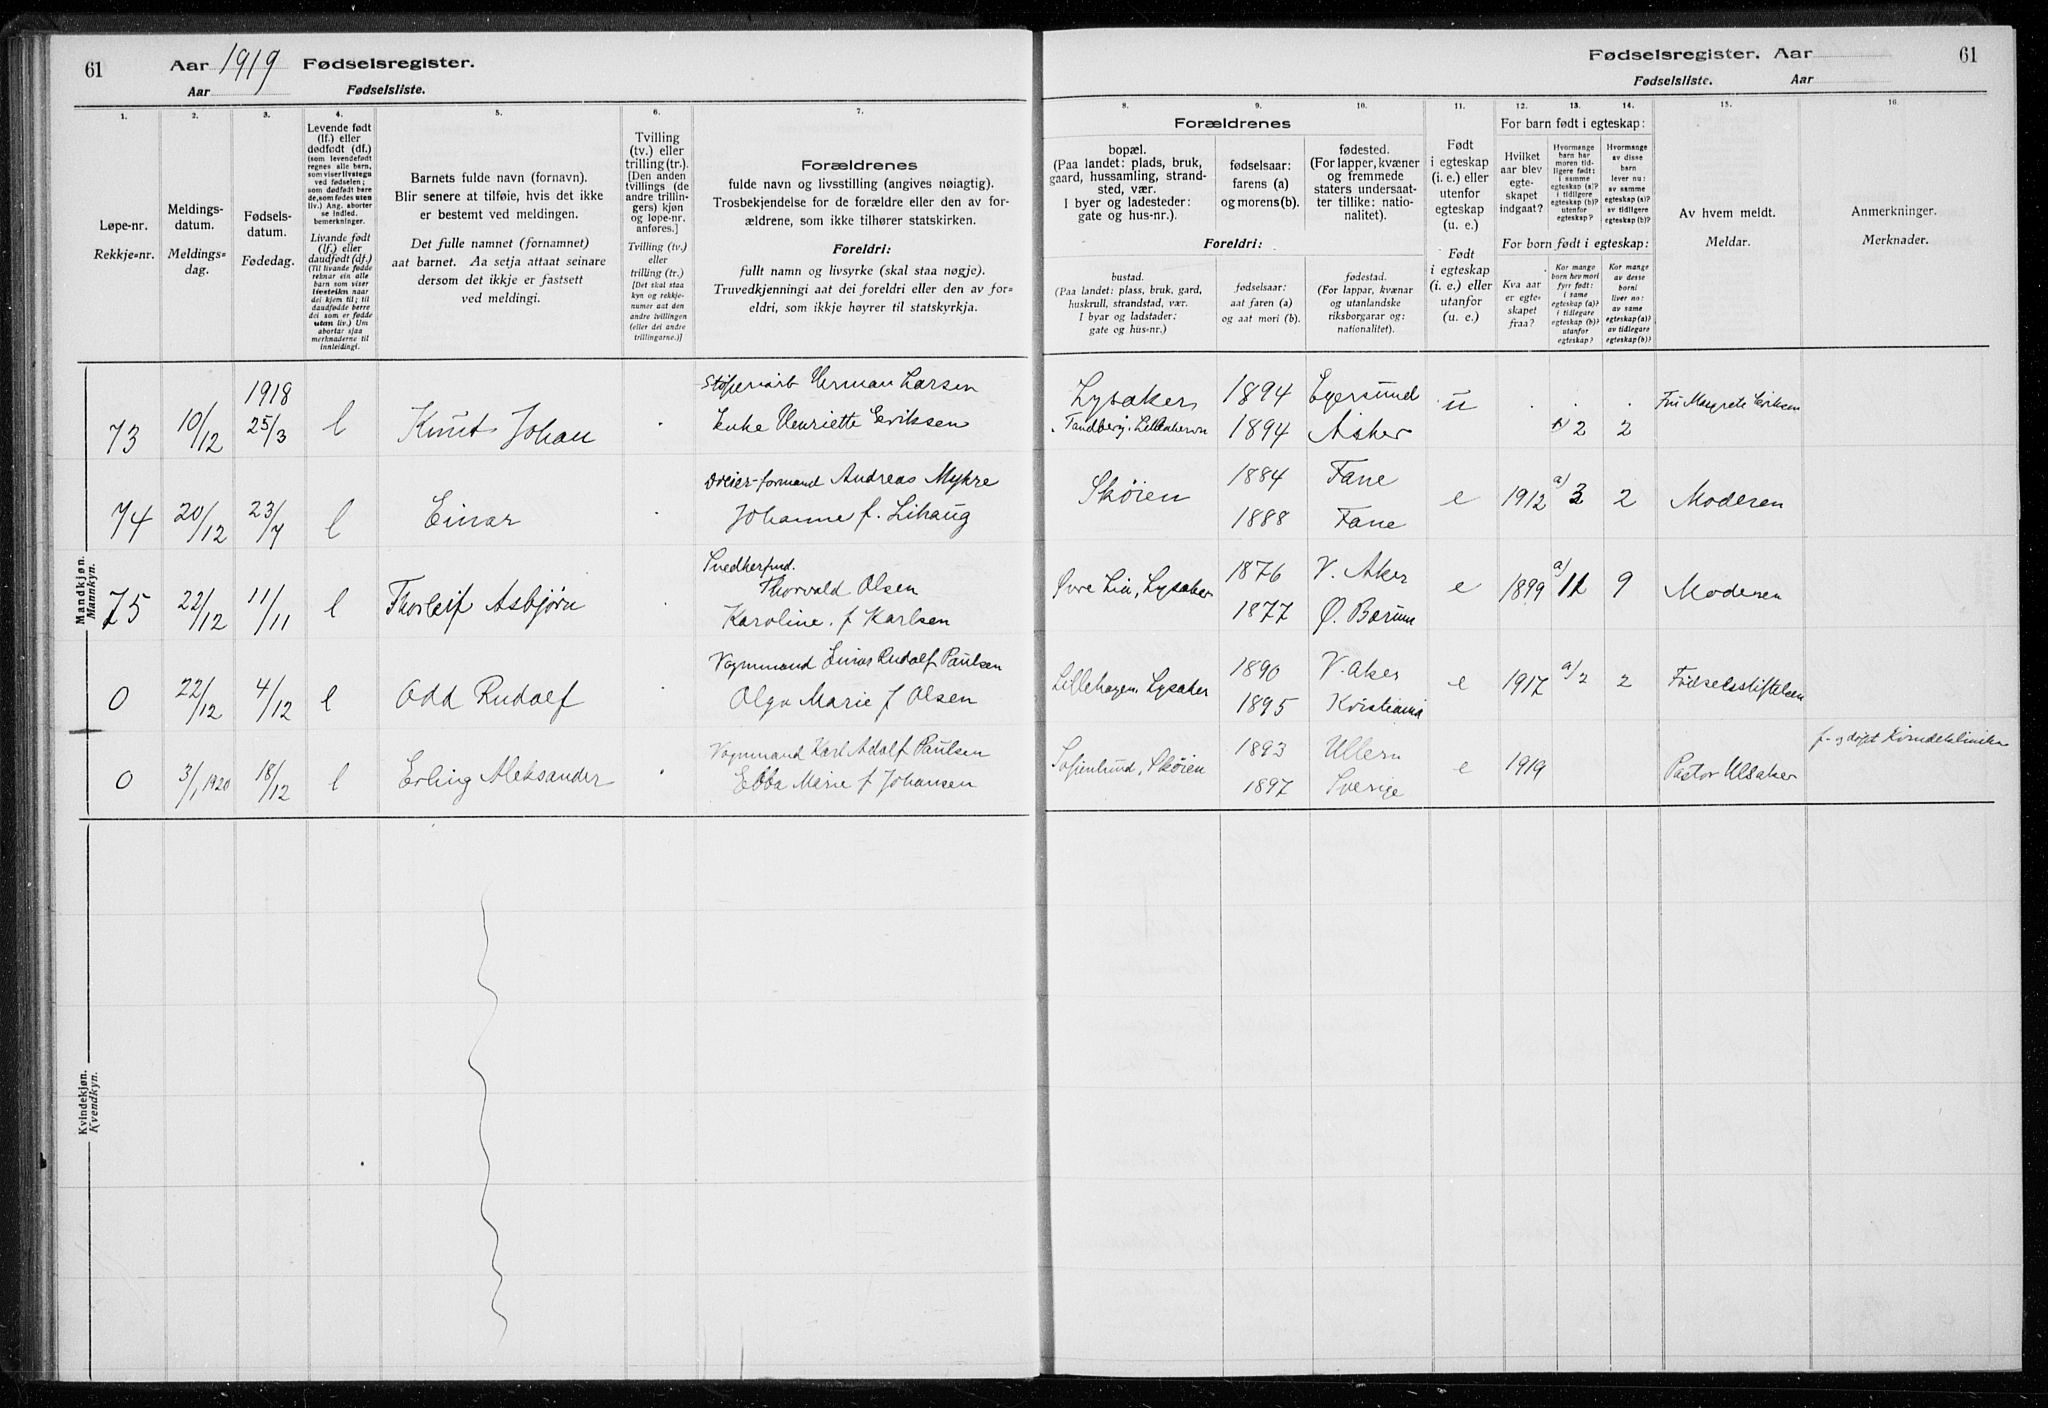 61 Aar 1919 Fødselsregister.
Aar Fødselsliste.
Fødselsregister. Aar 61
Fødselsliste. Aar
1. 2. 3. 4. 5. 6. 7.
8. 9. 10. 11. 12. 13. 14. 15. 16.
Løpe-nr.
Rekkje=nr.
Meldings-
datum.
Meldings=
dag.
Fødsels-
datum.
Fødedag.
Levende født
(lf.) eller
dødfødt (df.)
(som levendefødt
regnes alle barn,
som viser livstegn
ved fødselen;
som dødfødt bare
de, som fødes uten
liv.) Ang. aborter
se indled.
bemerkninger.
Livande født
(lf.) eller
daudfødt (df.)
(Til livande fødde
reknar ein alle
barn som viser
livsteikn naar
dei kjem til; til
daudfødde berre
dei som er fødde
utan liv.) Um
abortar sjaa
merknaderne til
innleidingi.
Barnets fulde navn (fornavn).
Blir senere at tilføie, hvis det ikke
er bestemt ved meldingen.
Det fulle namnet (fornamnet)
aat barnet. Aa setja attaat seinare
dersom det ikkje er fastsett
ved meldingi.
Tvilling
(tv.) eller
trilling (tr.).
[Den anden
tvillings (de
andre trillin-
gers) kjøn
og løpe-nr.
anføres.]
Tvilling (tv.)
eller
trilling (tr.)
[Det skal staa
kyn og rekkje-
numer aat den
andre tvillingen
(eller dei andre
trillingarne.)]
Forældrenes
fulde navn og livsstilling (angives nøiagtig).
Trosbekjendelse for de forældre eller den av for-
ældrene, som ikke tilhører statskirken.
Foreldri:
fullt namn og livsyrke (skal staa nøgje).
Truvedkjenningi aat dei foreldri eller den av for=
eldri, som ikkje høyrer til statskyrkja.
Forældrenes
bopæl.
(Paa landet: plads, bruk,
gaard, hussamling, strand-
sted, vær.
I byer og ladesteder:
gate og hus-nr.).
Foreldri:
bustad.
(Paa landet: plass, bruk, gard,
huskrull, strandstad, vær.
I byar og ladstader:
gate og hus-nr.)
fødselsaar:
farens (a)
og morens (b).
fødselsaar:
aat faren (a)
og aat mori (b).
fødested.
(For lapper, kvæner
og fremmede
staters undersaat-
ter tillike: natio-
nalitet).
fødestad.
(For lappar, kvænar
og utanlandske
riksborgarar og:
nationalitet).
Født
i egteskap
(i. e.) eller
utenfor
egteskap
(u. e.)
Født
i egteskap
(i. e.) eller
utanfor
egteskap
(u. e.)
For barn født i egteskap:
Hvilket
aar blev
egte-
skapet
indgaat?
Hvormange
barn har
moren tid-
ligere født:
i samme
egteskap (a)?
i tidligere
egteskap (b)?
utenfor
egteskap?
Hvormange
av disse
barn
lever nu:
av samme
egteskap (a)?
av tidligere
egteskap (b)?
For born født i egteskap:
Kva aar
er egte-
skapet
fraa?
Kor mange
born hev mori
fyrr født:
i same
egteskap (a)?
i tidlegare
egteskap (b)?
utanfor
egteskap?
Kor mange
av desse
borni
liver no:
av same
egteskap (a)?
av tidlegare
egteskap (b)?
Av hvem meldt.
Meldar.
Anmerkninger.
Merknader.
Mandkjøn.
Mannkyn.
Kvindekjøn.
Kvendkyn.
1918 Herman Larsen Lysaker 1894 Egersund u Fru Margrete Eriksen
73 10/12 25/3 l Knut Johan Henriette Eriksen 1894 Asker 2 2
Dreier-formand Andreas Myhre Skøien 1884 Fane
74 20/12 23/7 l Einar Johanne f. Lihaug 1888 Fane e 1912 a) 3 2 Moderen
Thorvald Olsen Øvre Lia, Lysaker 1876 V. Aker
75 22/12 11/11 l Thorleif Asbjørn Karoline f Karlsen 1877 Ø. Bærum e 1899 a) 11 9 Moderen
Vognmand Einar Rudolf Paulsen Lillehagen, Lysaker 1890 V. Aker
0 22/12 4/12 l Odd Rudolf Olga Marie f Olsen 1895 Kristiania e 1917 a/2 2 Fødselsstiftelsen
Vognmand Karl Adolf Paulsen Sofienlund, Skøien 1893 Ullern f- og døpt Kvindeklinikken
0 3/1 1920 18/12 l Erling Aleksander Ebba Marie f Johansen 1897 Sverige e 1919 Pastor Ulsaker